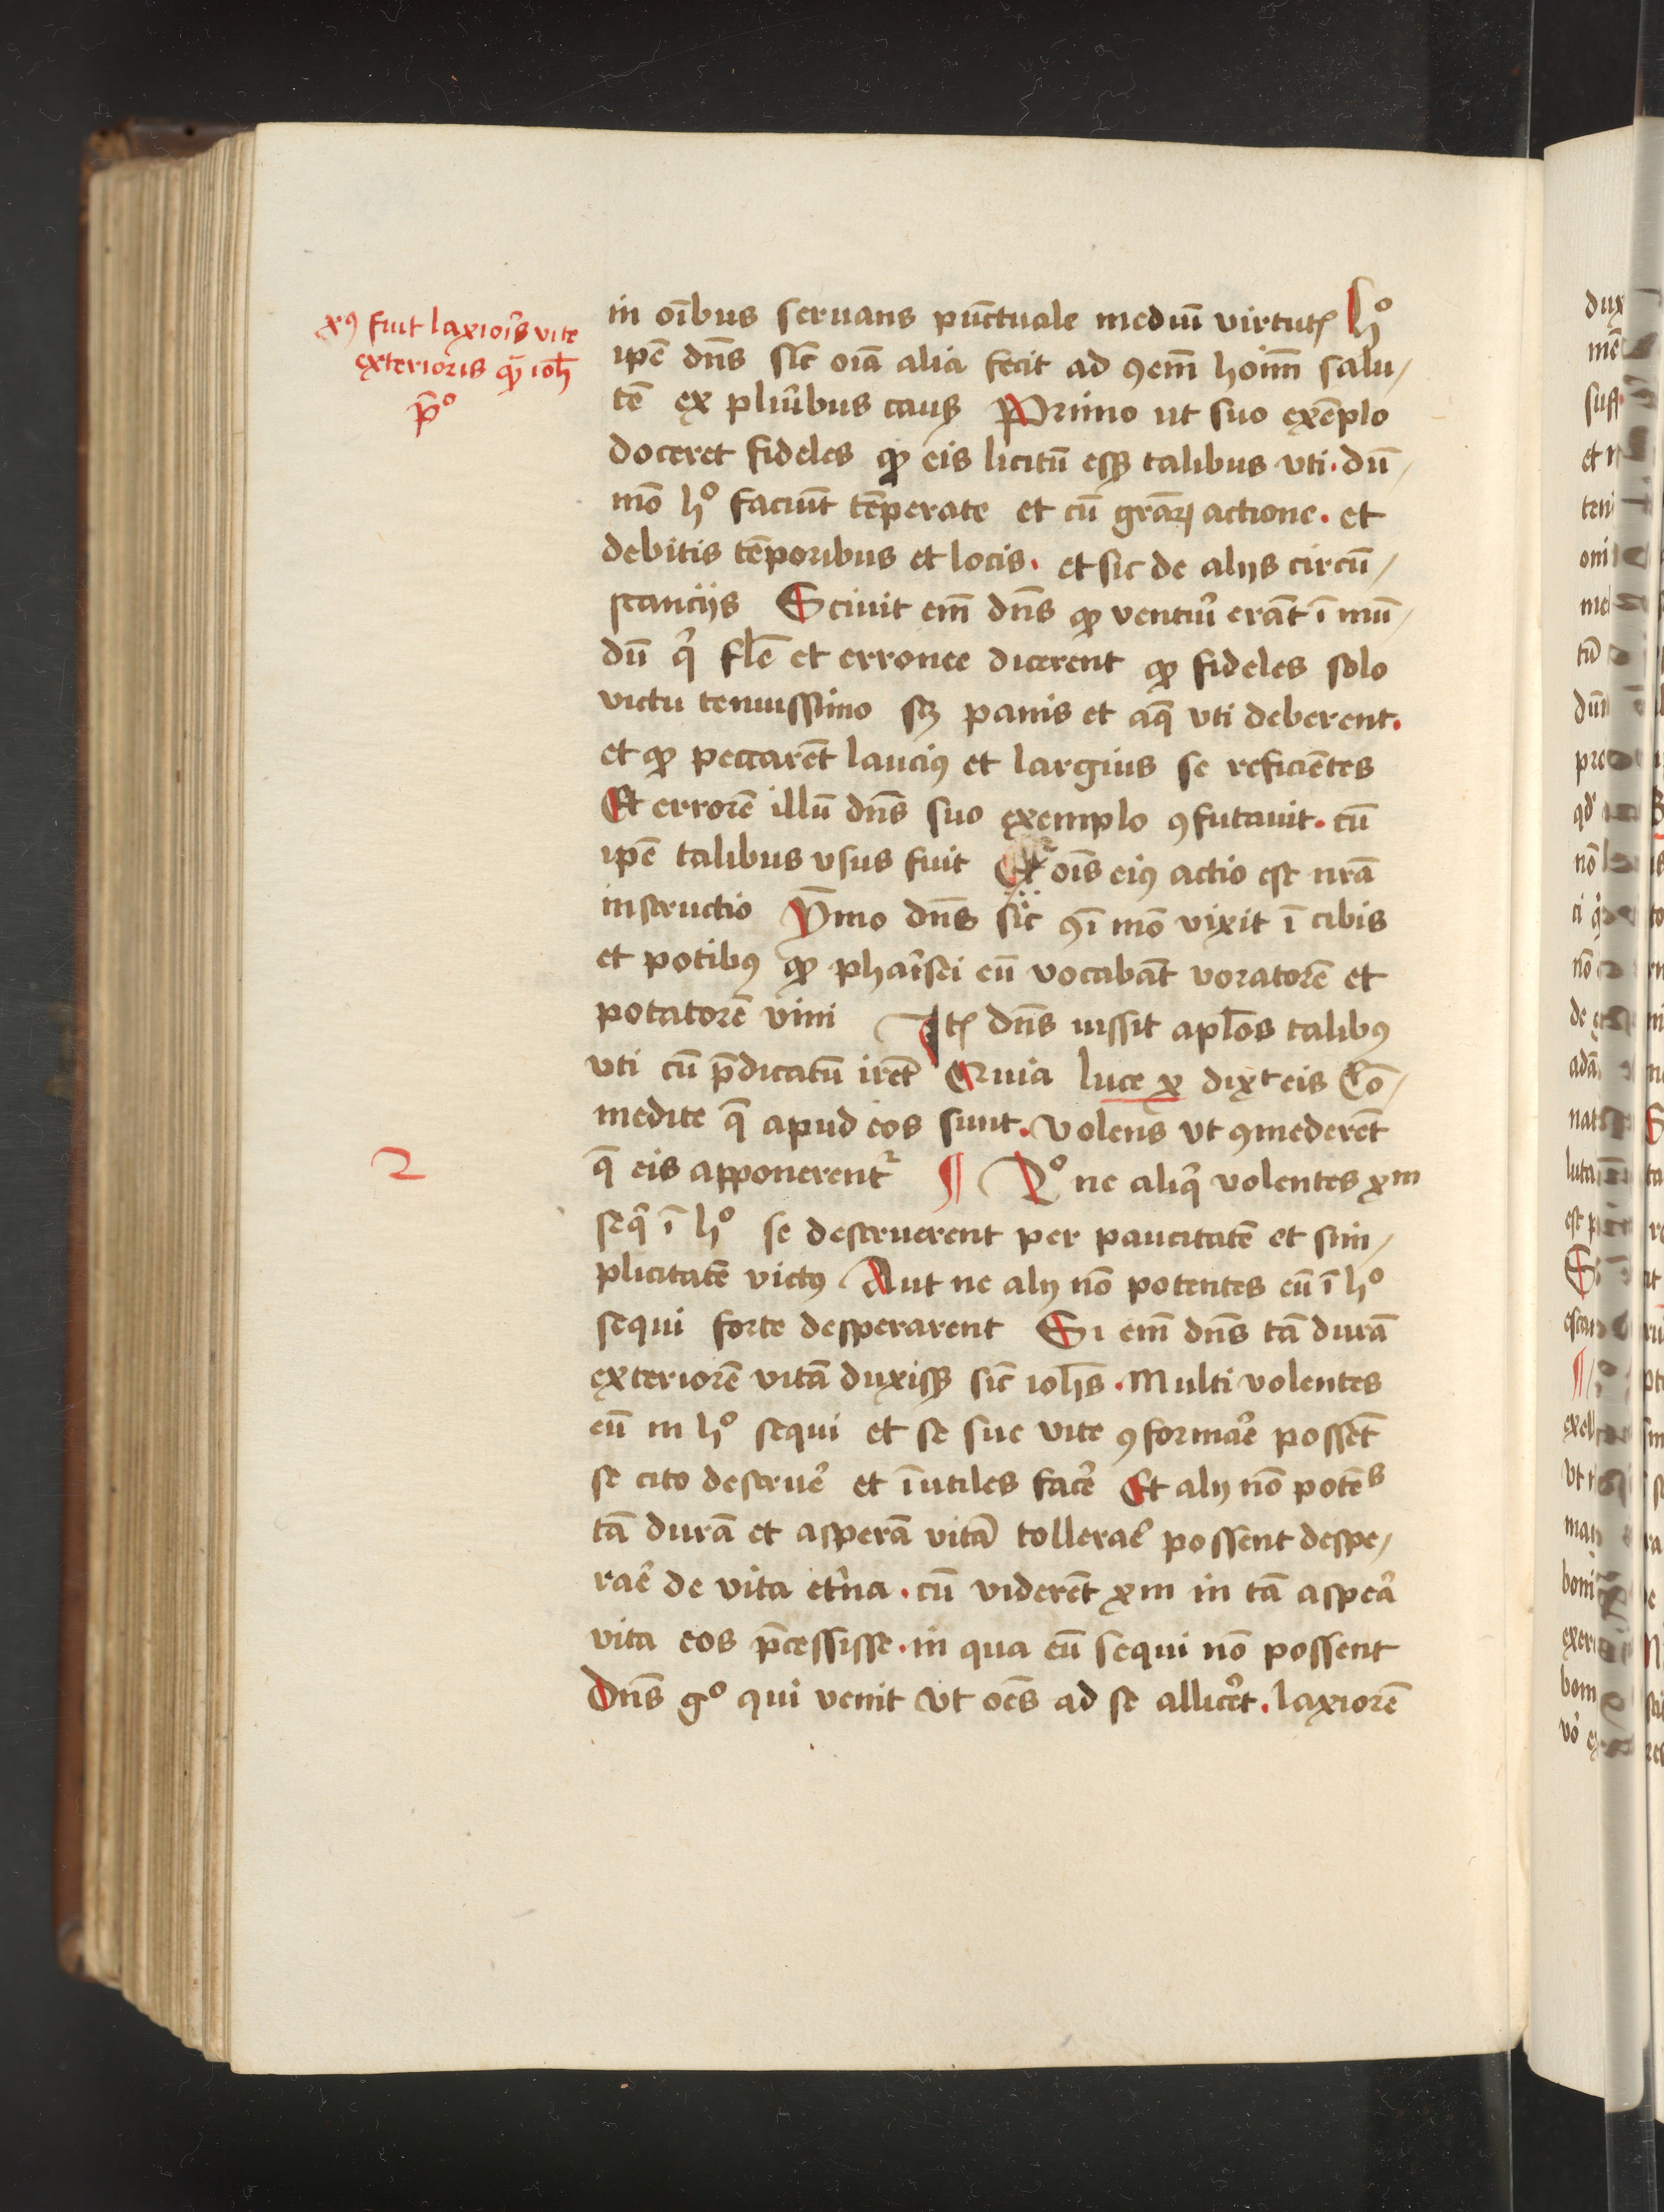 xꝰ fuit laxioris vite
exterioris qȝ ioh̄
p̄º
in oībus seruans pūctuale mediū virtutꝭ hº
ipē dn̄s sic̄ oīa alia fecit ad ꝯem̄ hoīm salu/
tē ex pluribus causꝭ Primo ut suo exēplo
doceret fideles qꝫ eis licitū esꝫ talibus vti. dū/
mō hº faciūt tēperate et cū grāꝝ actione. et
debitis tēporibus et locis. et sic de alijs circū/
stancijs Sciuit em̄ dn̄s qꝫ ventuͥ erāt ī mū/
dū qͥ fl̄e et erronee dicerent qꝫ fideles solo
victu tenuissimo sꝫ panis et aq̄ vti deberent.
et qꝫ peccarēt lauciꝰ et largius se reficiētes
Et errorē illū dn̄s suo exemplo ꝯfutauit. cū
ipē talibus vsus fuit Et oīs eiꝰ actio est nr̄a
instructio Ymmo dn̄s sic ꝯī mō vixit ī cibis
et potibꝰ qꝫ pharisei eū vocabāt voratorē et
potatorē vini Itꝭ dn̄s iussit apl̄os talibꝰ
vti cū p̄dicatū irēt Quia luce x dixͭ eis Cō/
medite q̄ apud eos sunt. volens vt ꝯmederēt
2
q̄ eis apponerentᷣ ¶ 2º ne aliqͥ volentes xm
seqͥ ī hº se destruerent per paucitatē et sim/
plicitatē victꝰ Aut ne alij nō potentes eū ī hº
sequi forte desperarent Si em̄ dn̄s tā durā
exteriorē vitā duxisꝫ sic̄ ioh̄s. Multi volentes
eū in hº sequi et se sue vite ꝯformare possēt
se cito destruere et īutiles facere Et alij nō potēs
tā durā et asperā vitā tollerare possent despe/
rare de vita etͥna. cū viderēt xm in tā aspera
vita eos p̄cessisse. in qua eū sequi nō possent
Dn̄s gº qui venit vt oēs ad se alliceret. laxiorē